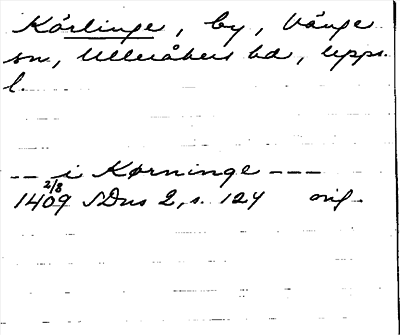 Kårlinge, by, Vänge
sn, Ulleråkers hd, Upps.
l.
-- i Kørninge ---
2/8
1409 SDns 2, s. 124 orig.